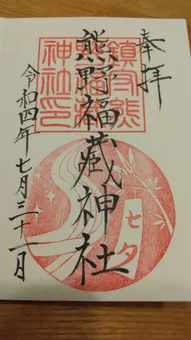 奉拝
鎮守熊
野福藏
神社印
熊野福藏神社
七夕
令和四年七月三十一日